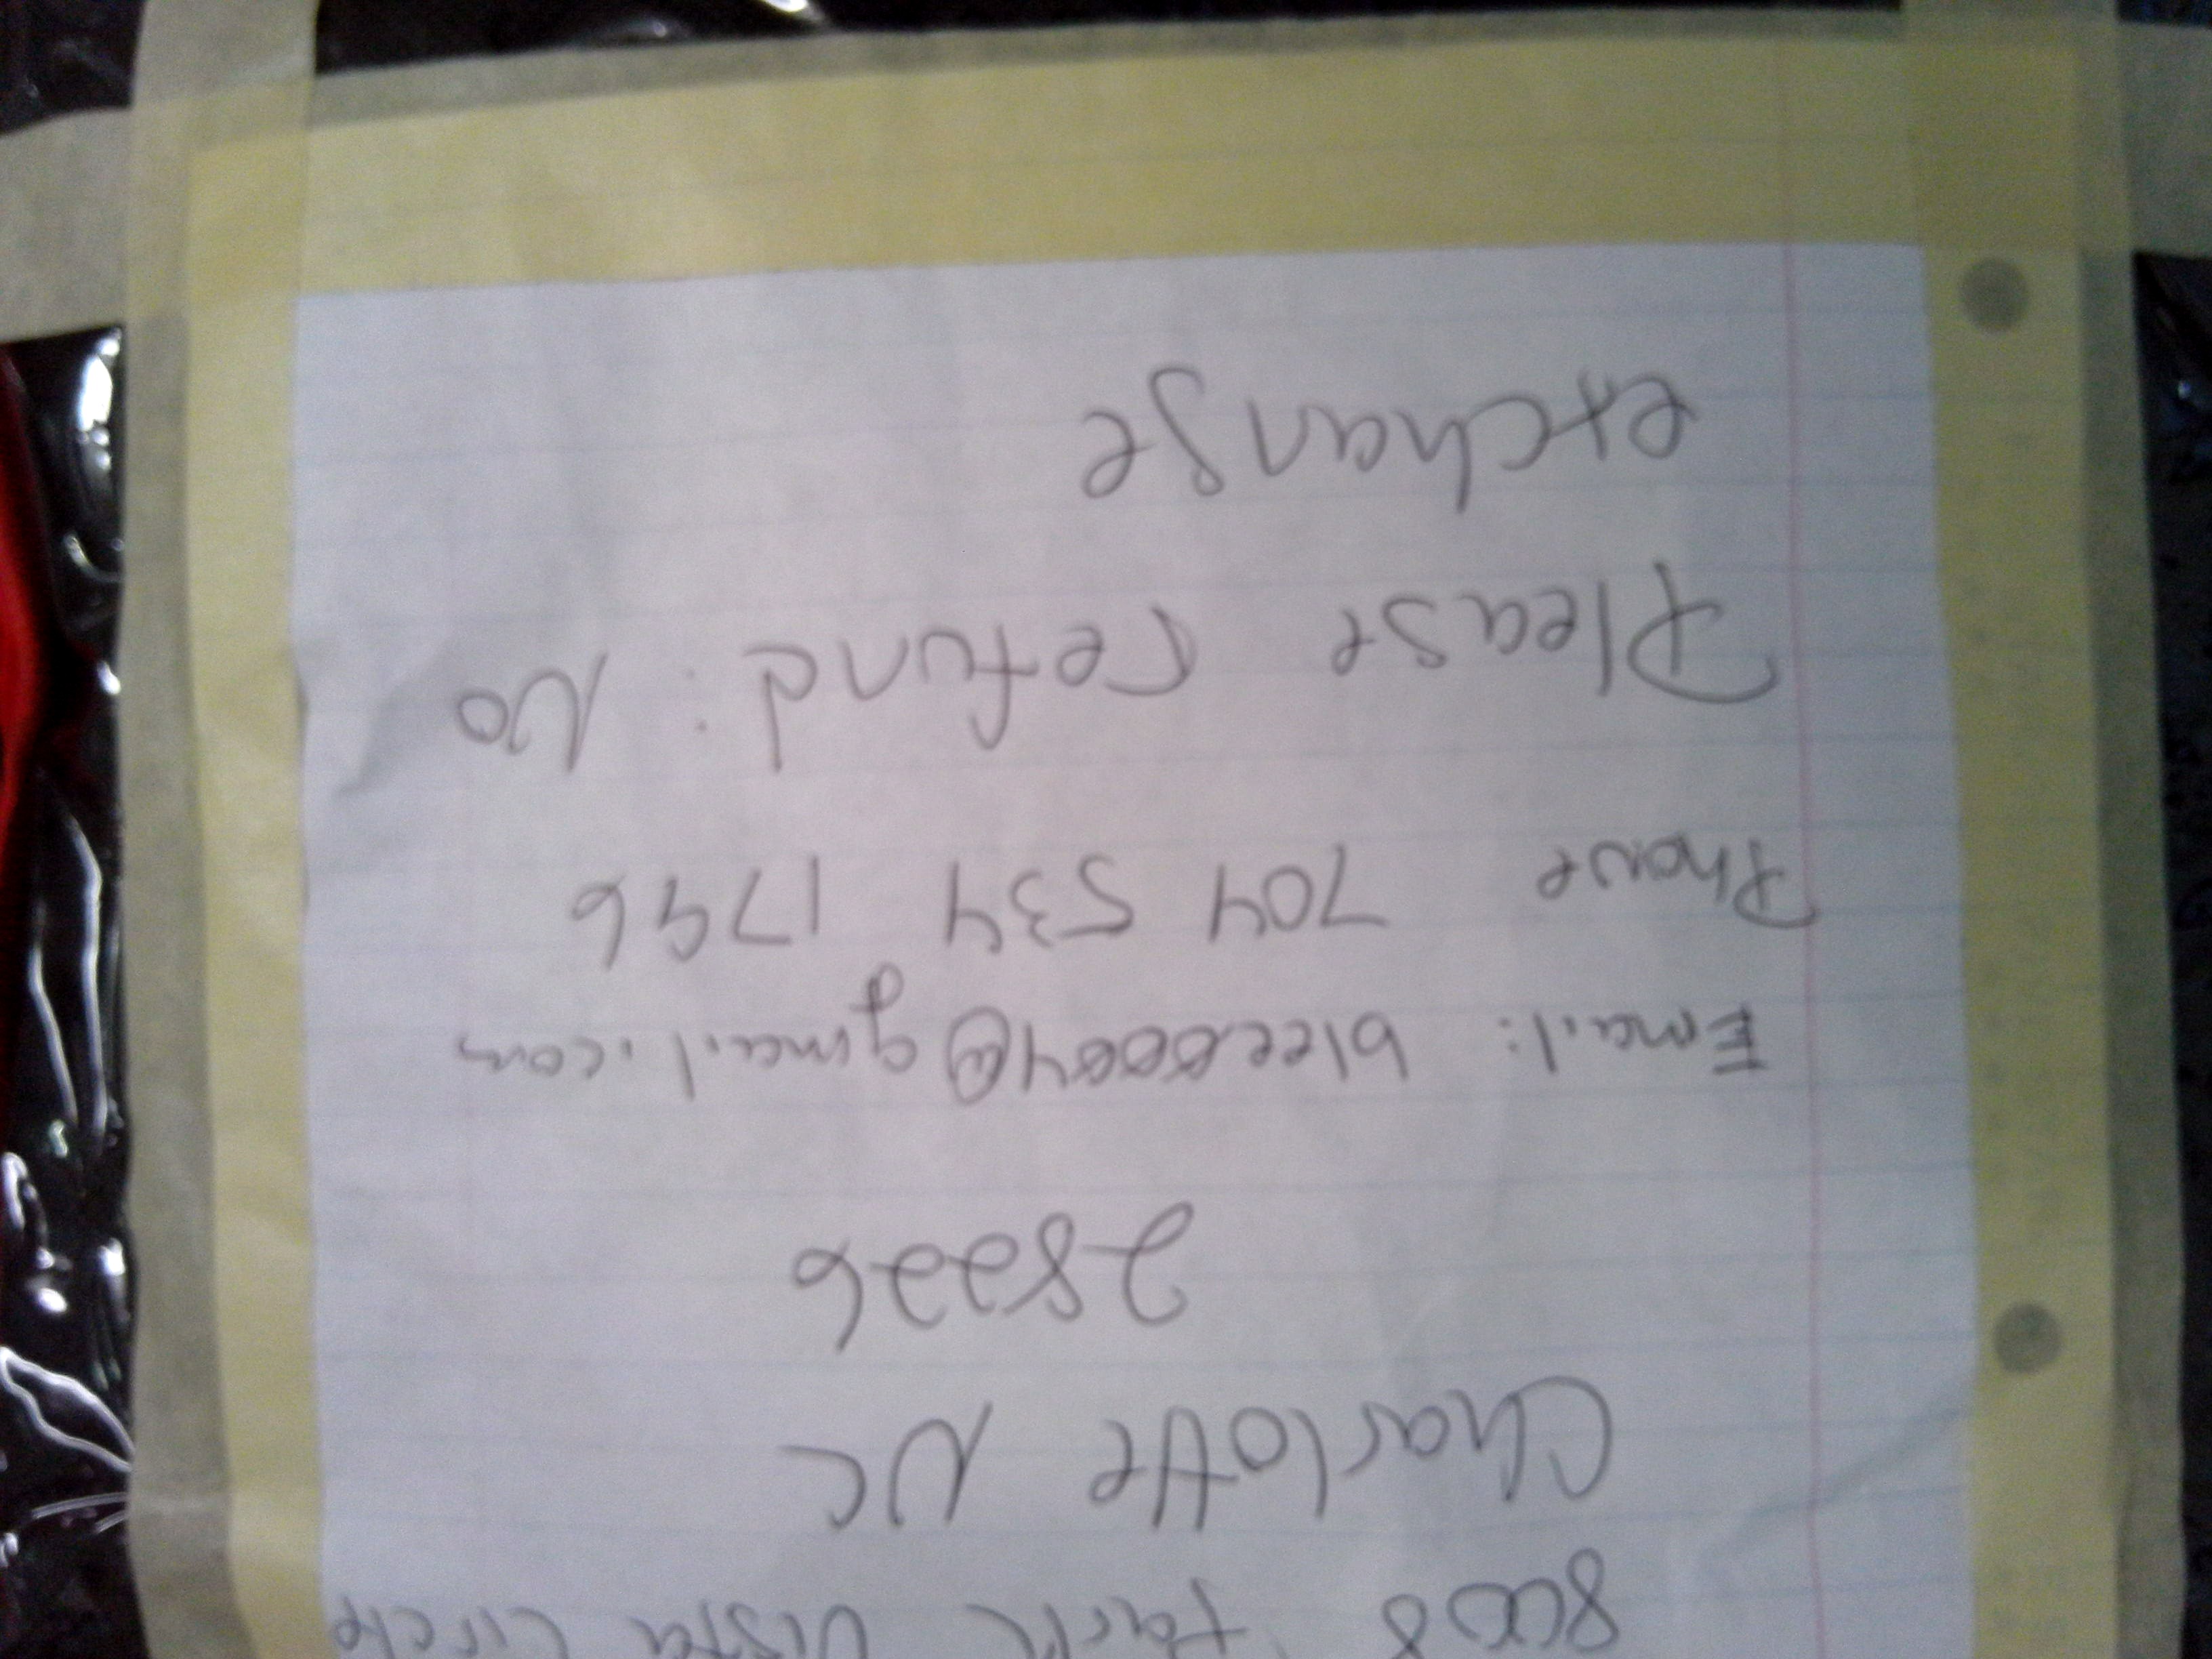 8008 Park Vista Circle
Charlotte NC
28226
Email: blee0004@gmail.com
Phone 704 534 1796
Please refund: No
exchange